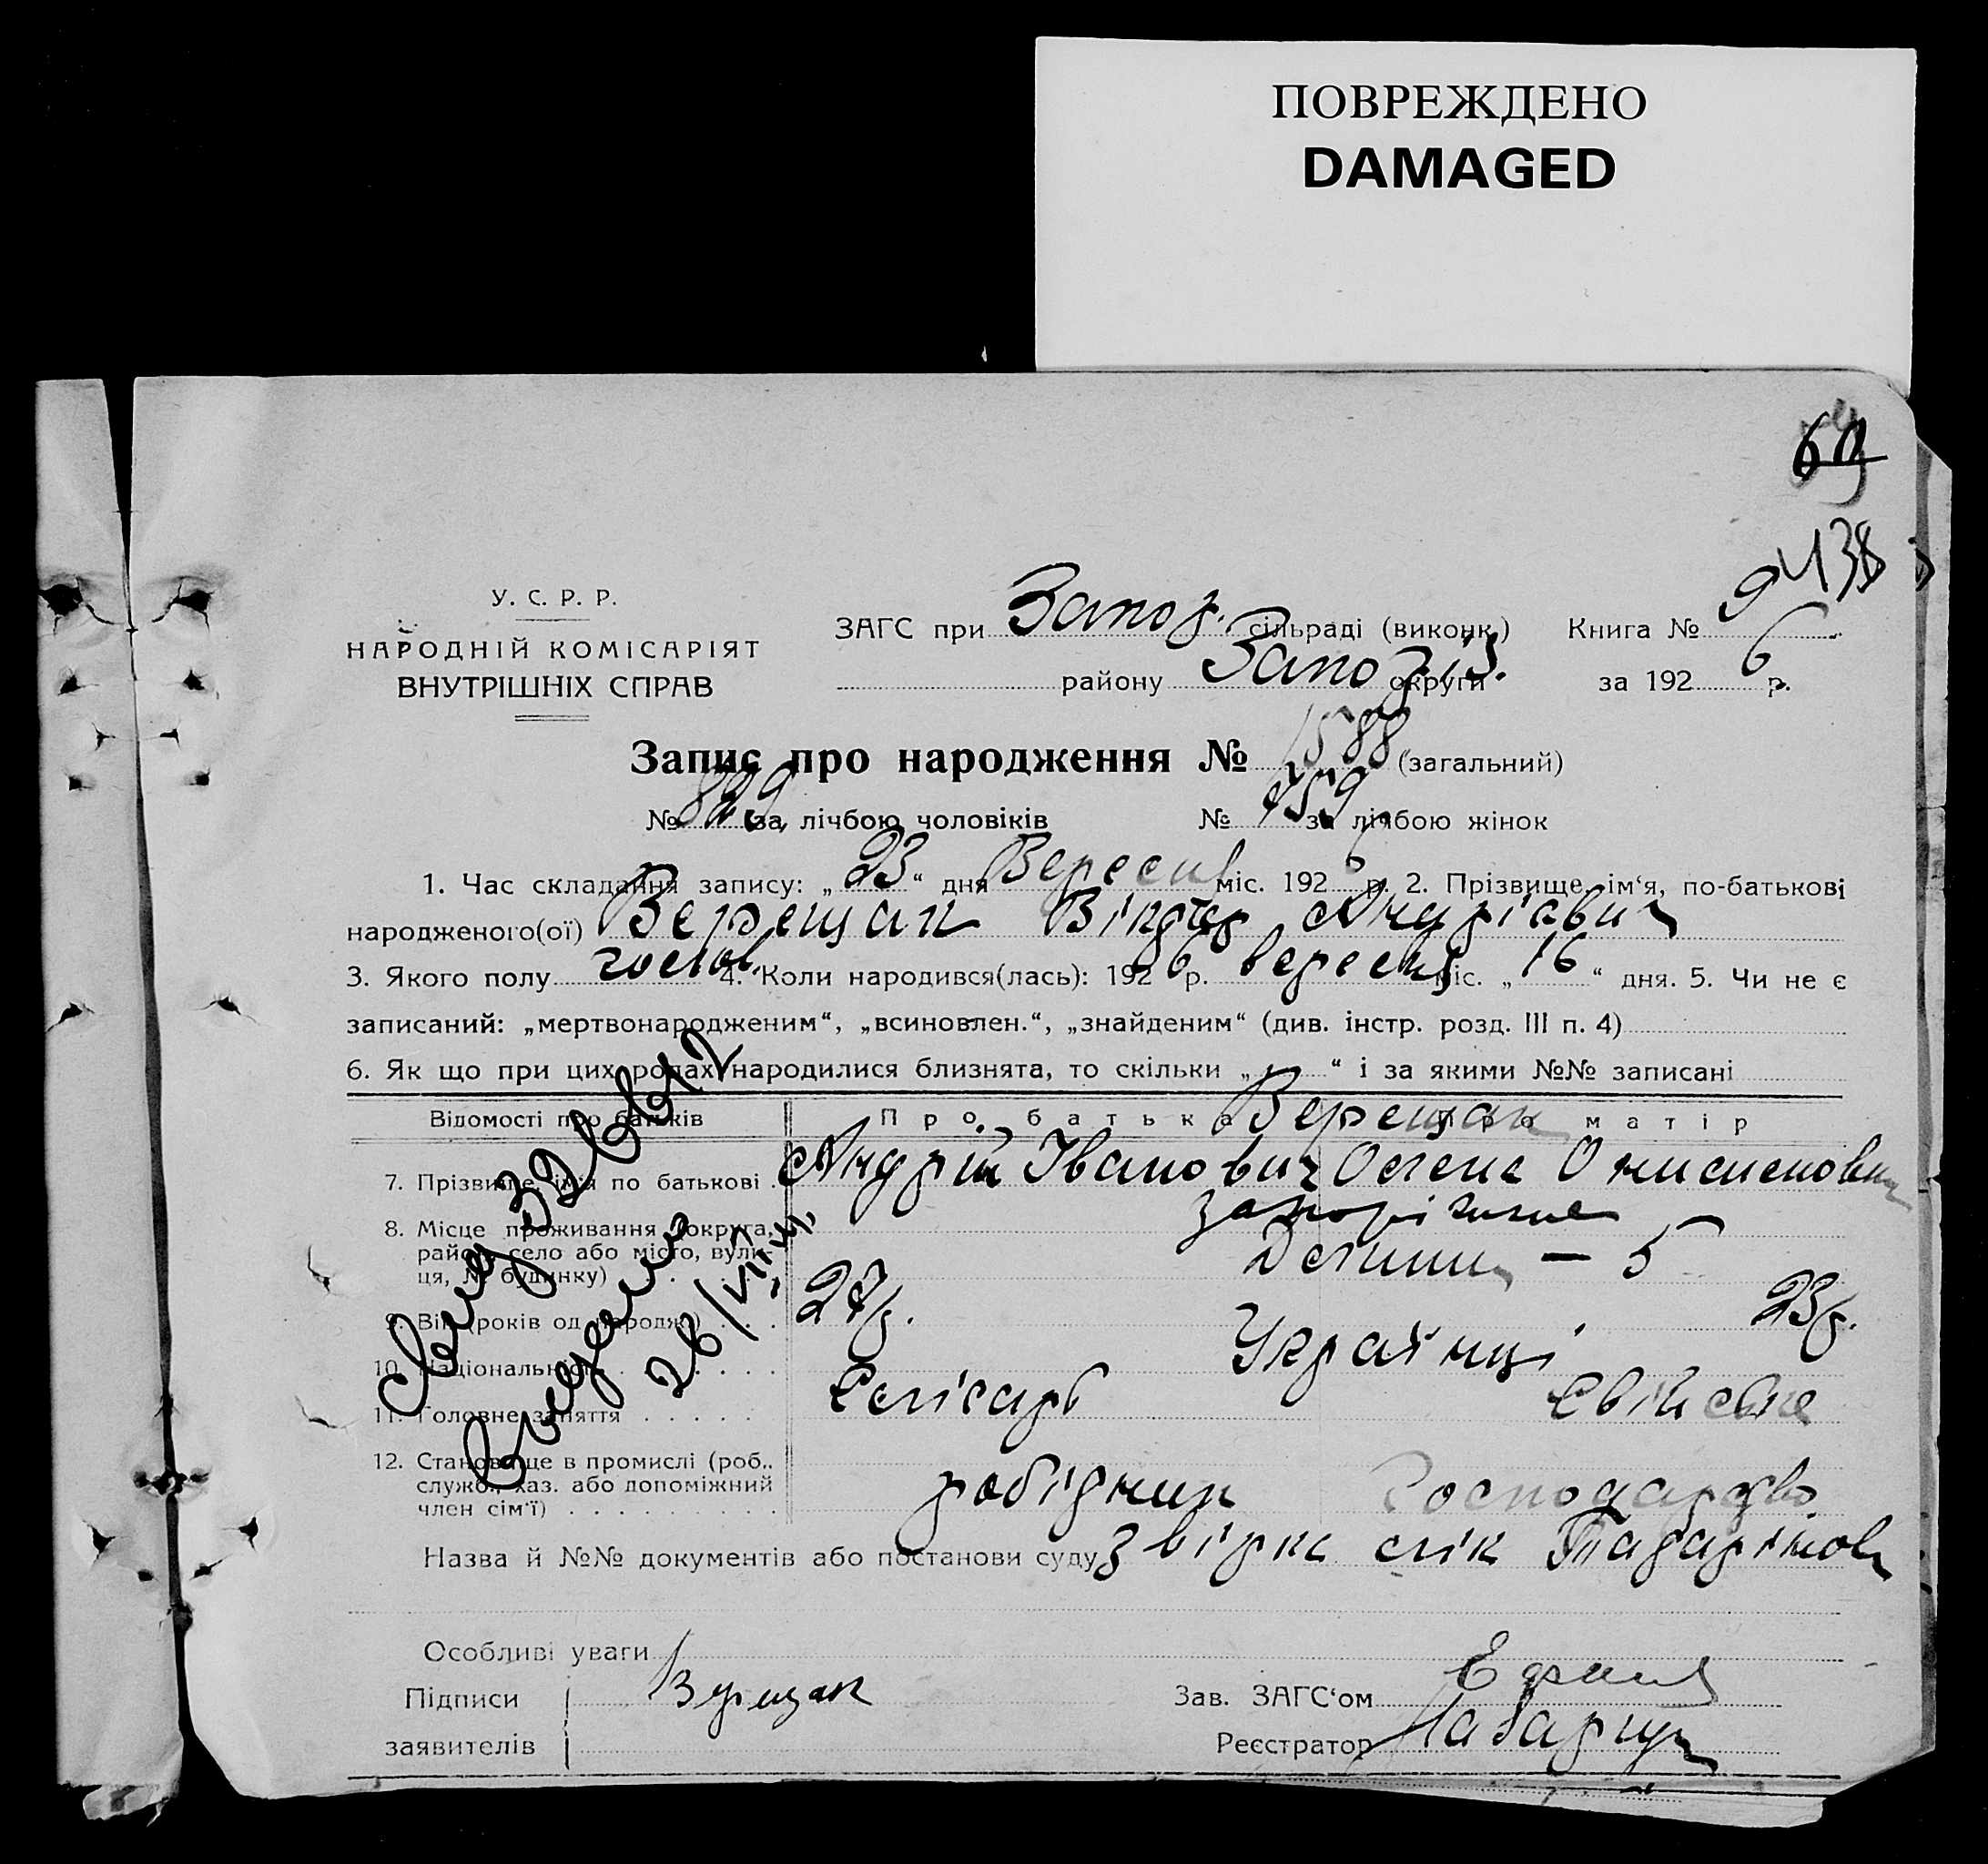 ПОВРЕЖДЕНО
DAMAGED
60
438
У. С. Р. Р.
НАРОДНІЙ КОМІСАРІЯТ
ВНУТРІШНІХ СПРАВ
ЗАГС при Запор. сільраді (виконк.) Книга № 9
району Запоріз. округи за 1926 р.
Запис про народження № 1588 (загальний)
№ 829 за лічбою чоловіків № 759 за лічбою жінок
1. Час складання запису: „23“ дня Вересня міс. 1926 р. 2. Прізвище, ім‘я, по-батькові
народженого(ої) Верещак Віктор Андрієвич
3. Якого полу чолов. 4. Коли народився(лась): 1926 р. вересня міс. „16“ дня. 5. Чи не є
записаний: „мертвонародженим“, „всиновлен.“, „знайденим“ (див. інстр. розд. III п. 4)
6. Як що при цих родах народилися близнята, то скільки „ “ і за якими №№ записані
Відомості про батьків Про батька Про матір
Верещак
7. Прізвище, ім‘я по батькові Андрій Іванович Олена Онисимовна
8. Місце проживання (округа, район, село або місто, вулиця, № будинку) Запоріжжя
– 5
9. Вік (років од народж.) 27 р. 23 р.
10. Національність Українці
11. Головне заняття Слісарь Свійське
12. Становище в промислі (роб., служб., хаз. або допоміжний член сім‘ї) робітник Господарство
Назва й №№ документів або постанови суду
Особливі уваги
Підписи Верещак Зав. ЗАГС‘ом
заявителів Реєстратор